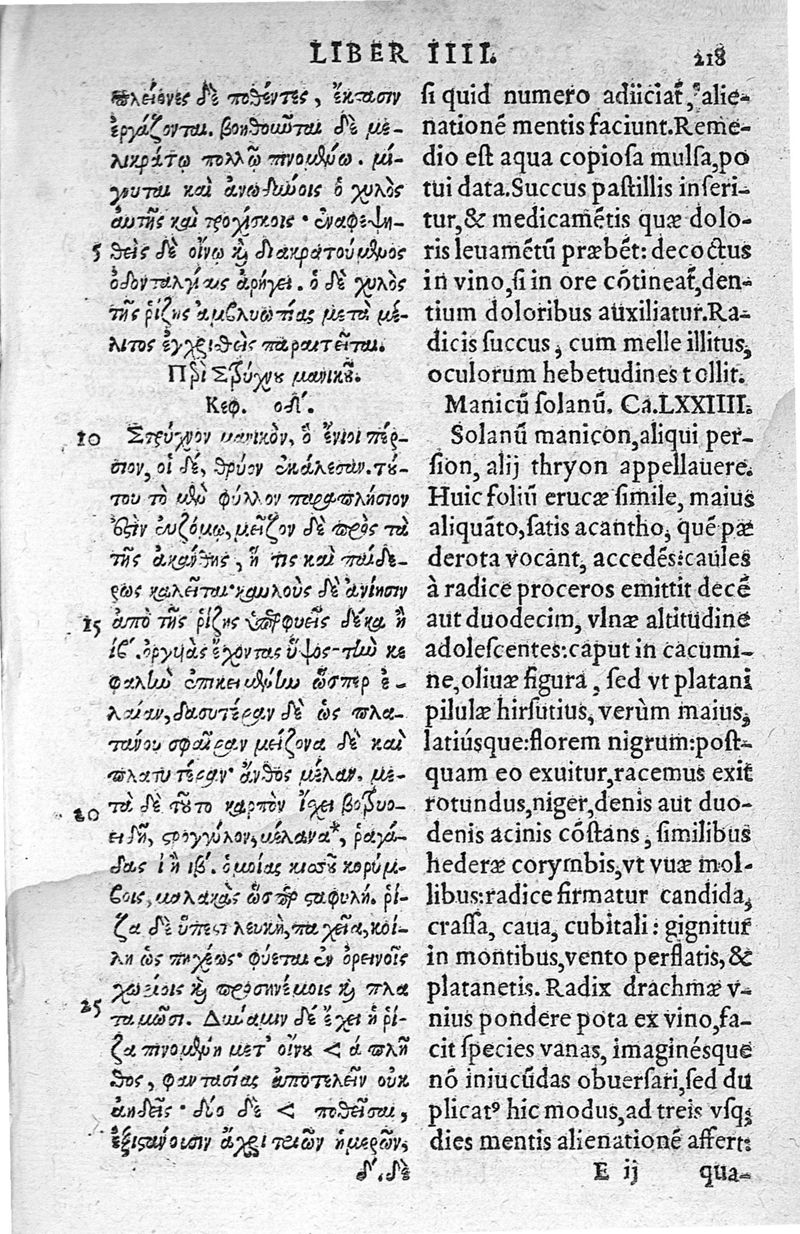 LIBER IIII.
218
πλείονες δὲ ποθέντες, ἔκστασιν
ἐργάζονται. βοηθοῦνται δὲ με-
λικράτῳ πολλῷ πινομένῳ. μί-
γνυται καὶ ἀνωδύνοις ὁ χυλὸς
αὐτῆς καὶ τροχίσκοις· ἐναφεψη-
5 θεὶς δὲ οἴνῳ κ διακρατούμενος
ὀδονταλγίαις ἀρήγει. ὁ δὲ χυλὸς
τῆς ῥίζης ἀμβλυωπίας μετὰ μέ-
λιτος ἐγχρισθεὶς παραιτεῖται.
Περὶ Στρύχνου μανικοῦ.
Κεφ. οδ'.
10 Στρύχνον μανικὸν, ὃ ἔνιοι πέρ-
σιον, οἱ δέ, θρύον ἐκάλεσαν. τού-
του τὸ μὲν φύλλον παραπλήσιον
ἐστὶν εὐζώμῳ, μεῖζον δὲ πρὸς τὰ
τῆς ἀκάνθης, ἥ τις καὶ παιδέ-
ρως καλεῖται· καυλοὺς δὲ ἀνίησιν
15 ἀπὸ τῆς ῥίζης ὑπερφυεῖς δέκα ἢ
ιβ'. ὀργυιᾶς ἔχοντας ὕψος· τὴν κε
φαλὴν ἐπικειμένην ὥσπερ ἐ-
λαίαν, δασυτέραν δὲ ὡς πλα-
τάνου σφαῖραν μείζονα δὲ καὶ
πλατυτέραν· ἄνθος μέλαν. με-
20 τὰ δὲ τοῦτο καρπὸν ἴχει βοτρυο-
ειδῆ, στρογγύλον, μέλανα*, ῥαγά-
δας ἰ ἢ ιβ'. ὁμοίας κισσοῦ κορύμ-
βοις, μαλακὰς ὥσπερ σταφυλή. ῥί-
ζα δὲ ὕπεστι λευκὴ, παχεῖα, κοί-
λη ὡς πηχέως· φύεται ἐν ὀρεινοῖς
χωρίοις κ προσηνέμοις κ πλα
25 ταμῶσι. Δύναμιν δέ ἔχει ἡ ῥί-
ζα πινομένη μετ' οἴνου < ἁ πλῆ
θος, φαντασίας ἀποτελεῖν οὐκ
ἀηδεῖς· δύο δὲ < ποθεῖσαι,
ἐξιστάνουσιν ἄχρι τριῶν ἡμερῶν,
δ'. δὲ
si quid numero adiiciat̃, alie-
nationẽ mentis faciunt. Reme-
dio est aqua copiosa mulsa, po
tui data. Succus pastillis inseri-
tur, & medicamẽtis quæ dolo-
ris leuamẽtũ præbẽt: decoctus
in vino, si in ore cõtineat̃, den-
tium doloribus auxiliatur. Ra-
dicis succus, cum melle illitus,
oculorum hebetudines tollit.
Manicũ solanũ. Ca. LXXIIII.
Solanũ manicon, aliqui per-
sion, alij thryon appellauere.
Huic foliũ erucæ simile, maius
aliquãto, satis acantho, quẽ pæ
derota vocãt, accedẽs: caules
à radice proceros emittit decẽ
aut duodecim, vlnæ altitudine
adolescentes: caput in cacumi-
ne, oliuæ figura, sed vt platani
pilulæ hirsutius, verùm maius,
latiúsque: florem nigrum: post-
quam eo exuitur, racemus exit
rotundus, niger, denis aut duo-
denis acinis cõstans, similibus
hederæ corymbis, vt vuæ mol-
libus: radice firmatur candida,
crassa, caua, cubitali: gignitur
in montibus, vento perflatis, &
platanetis. Radix drachmæ v-
nius pondere pota ex vino, fa-
cit species vanas, imaginésque
nõ iniucũdas obuersari, sed du
plicatꝰ hic modus, ad treis vsq;
dies mentis alienationẽ affert:
E ij qua-